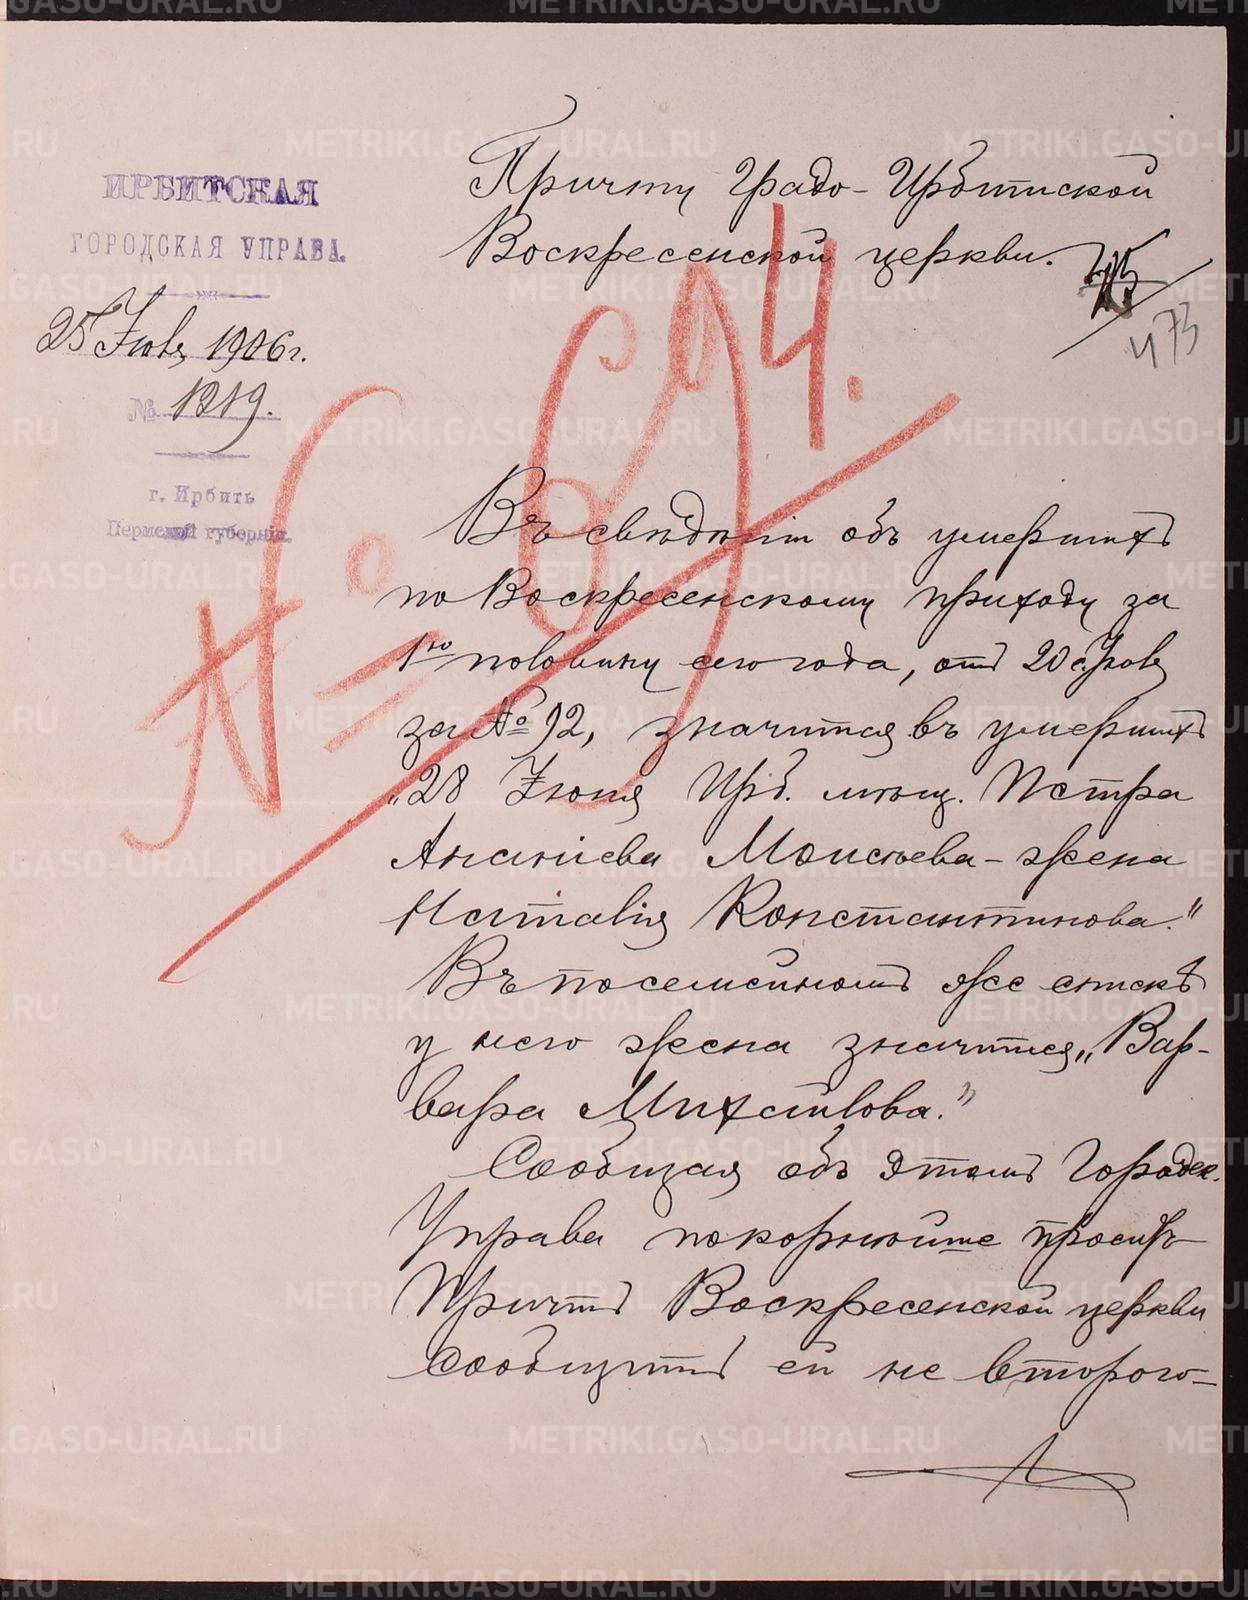 ИРБИТСКАЯ
ГОРОДСКАЯ УПРАВА.
25 Июля 1906 г.
№ 1219.
г. Ирбить
Пермской губерніи.
Причту Градо-Ирбитской
Воскресенской церкви.
473
№ 694.
Въ свѣдѣніи объ умершихъ
по Воскресенскому приходу за
1ю половину сего года, отъ 20 с. Июля
за № 92, значится въ умершихъ
„28 Июня Ирб. мѣщ. Петра
Ананіева Моисѣева - жена
Наталія Константинова."
Въ посемейномъ же спискѣ
у него жена значится „Вар-
вара Михайлова."
Сообщая объ этомъ Городск.
Управа покорнѣйше проситъ
Причтъ Воскресенской церкви
сообщить ей не второго-
METRIKI.GASO-URAL.RU